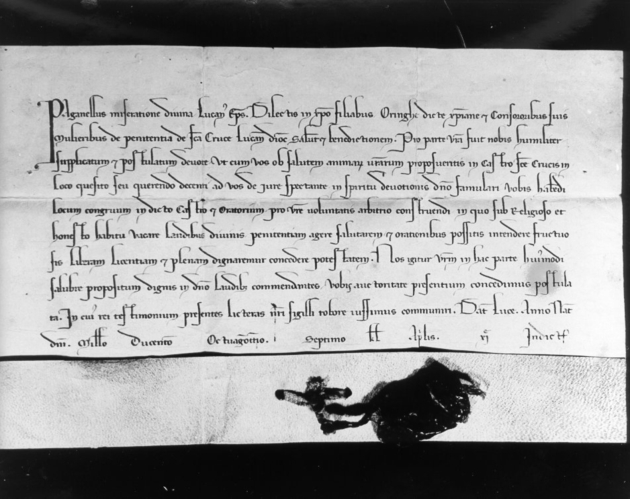 Paganellus miseratione divina Lucan᾽ Ep̄s. Dilectis in xp̄o filiabus Oringhe dicte xp̄iane ⁊ Consororibus suis
Mulieribus de penitentia de sc̄a Cruce Lucan᾽ dioc᾽ Salut᾽ ⁊ benedictionem. Pro parte vr̄a fuit nobis humiliter
supplicatum ⁊ postulatum devote Ut cum vos ob salutem animar᾽ vestrarum proposueritis in Castro sc̄e Crucis in
loco quesito seu querendo decenti ad vos de iure spectante in spiritu devotionis dn̄o famulari vobis habēdi
locum congruum in dicto Castro ⁊ Oratorium pro vr̄e voluntatis arbitrio construendi in quo sub Religioso et
honesto habitu vacare laudibus divinis penitentiam agere salutarem ⁊ orationibus possitis intendere fructuo
sis liberam licentiam ⁊ plenam dignaremur concedere potestatem. Nos igitur vr̄m in hac parte hui᾽modi
salubre propositum dignis in dn̄o laudib᾽ commendantes. Vobis auctoritate presentium concedimus postula
ta. In cui᾽ rei testimonium presentes licteras nr̄i sigilli robore iussimus communiri. Dat᾽ Luce. Anno Nat᾽
dn̄i. Mill᾽o Ducento Octuagesimo Septimo Aprilis Indict᾽